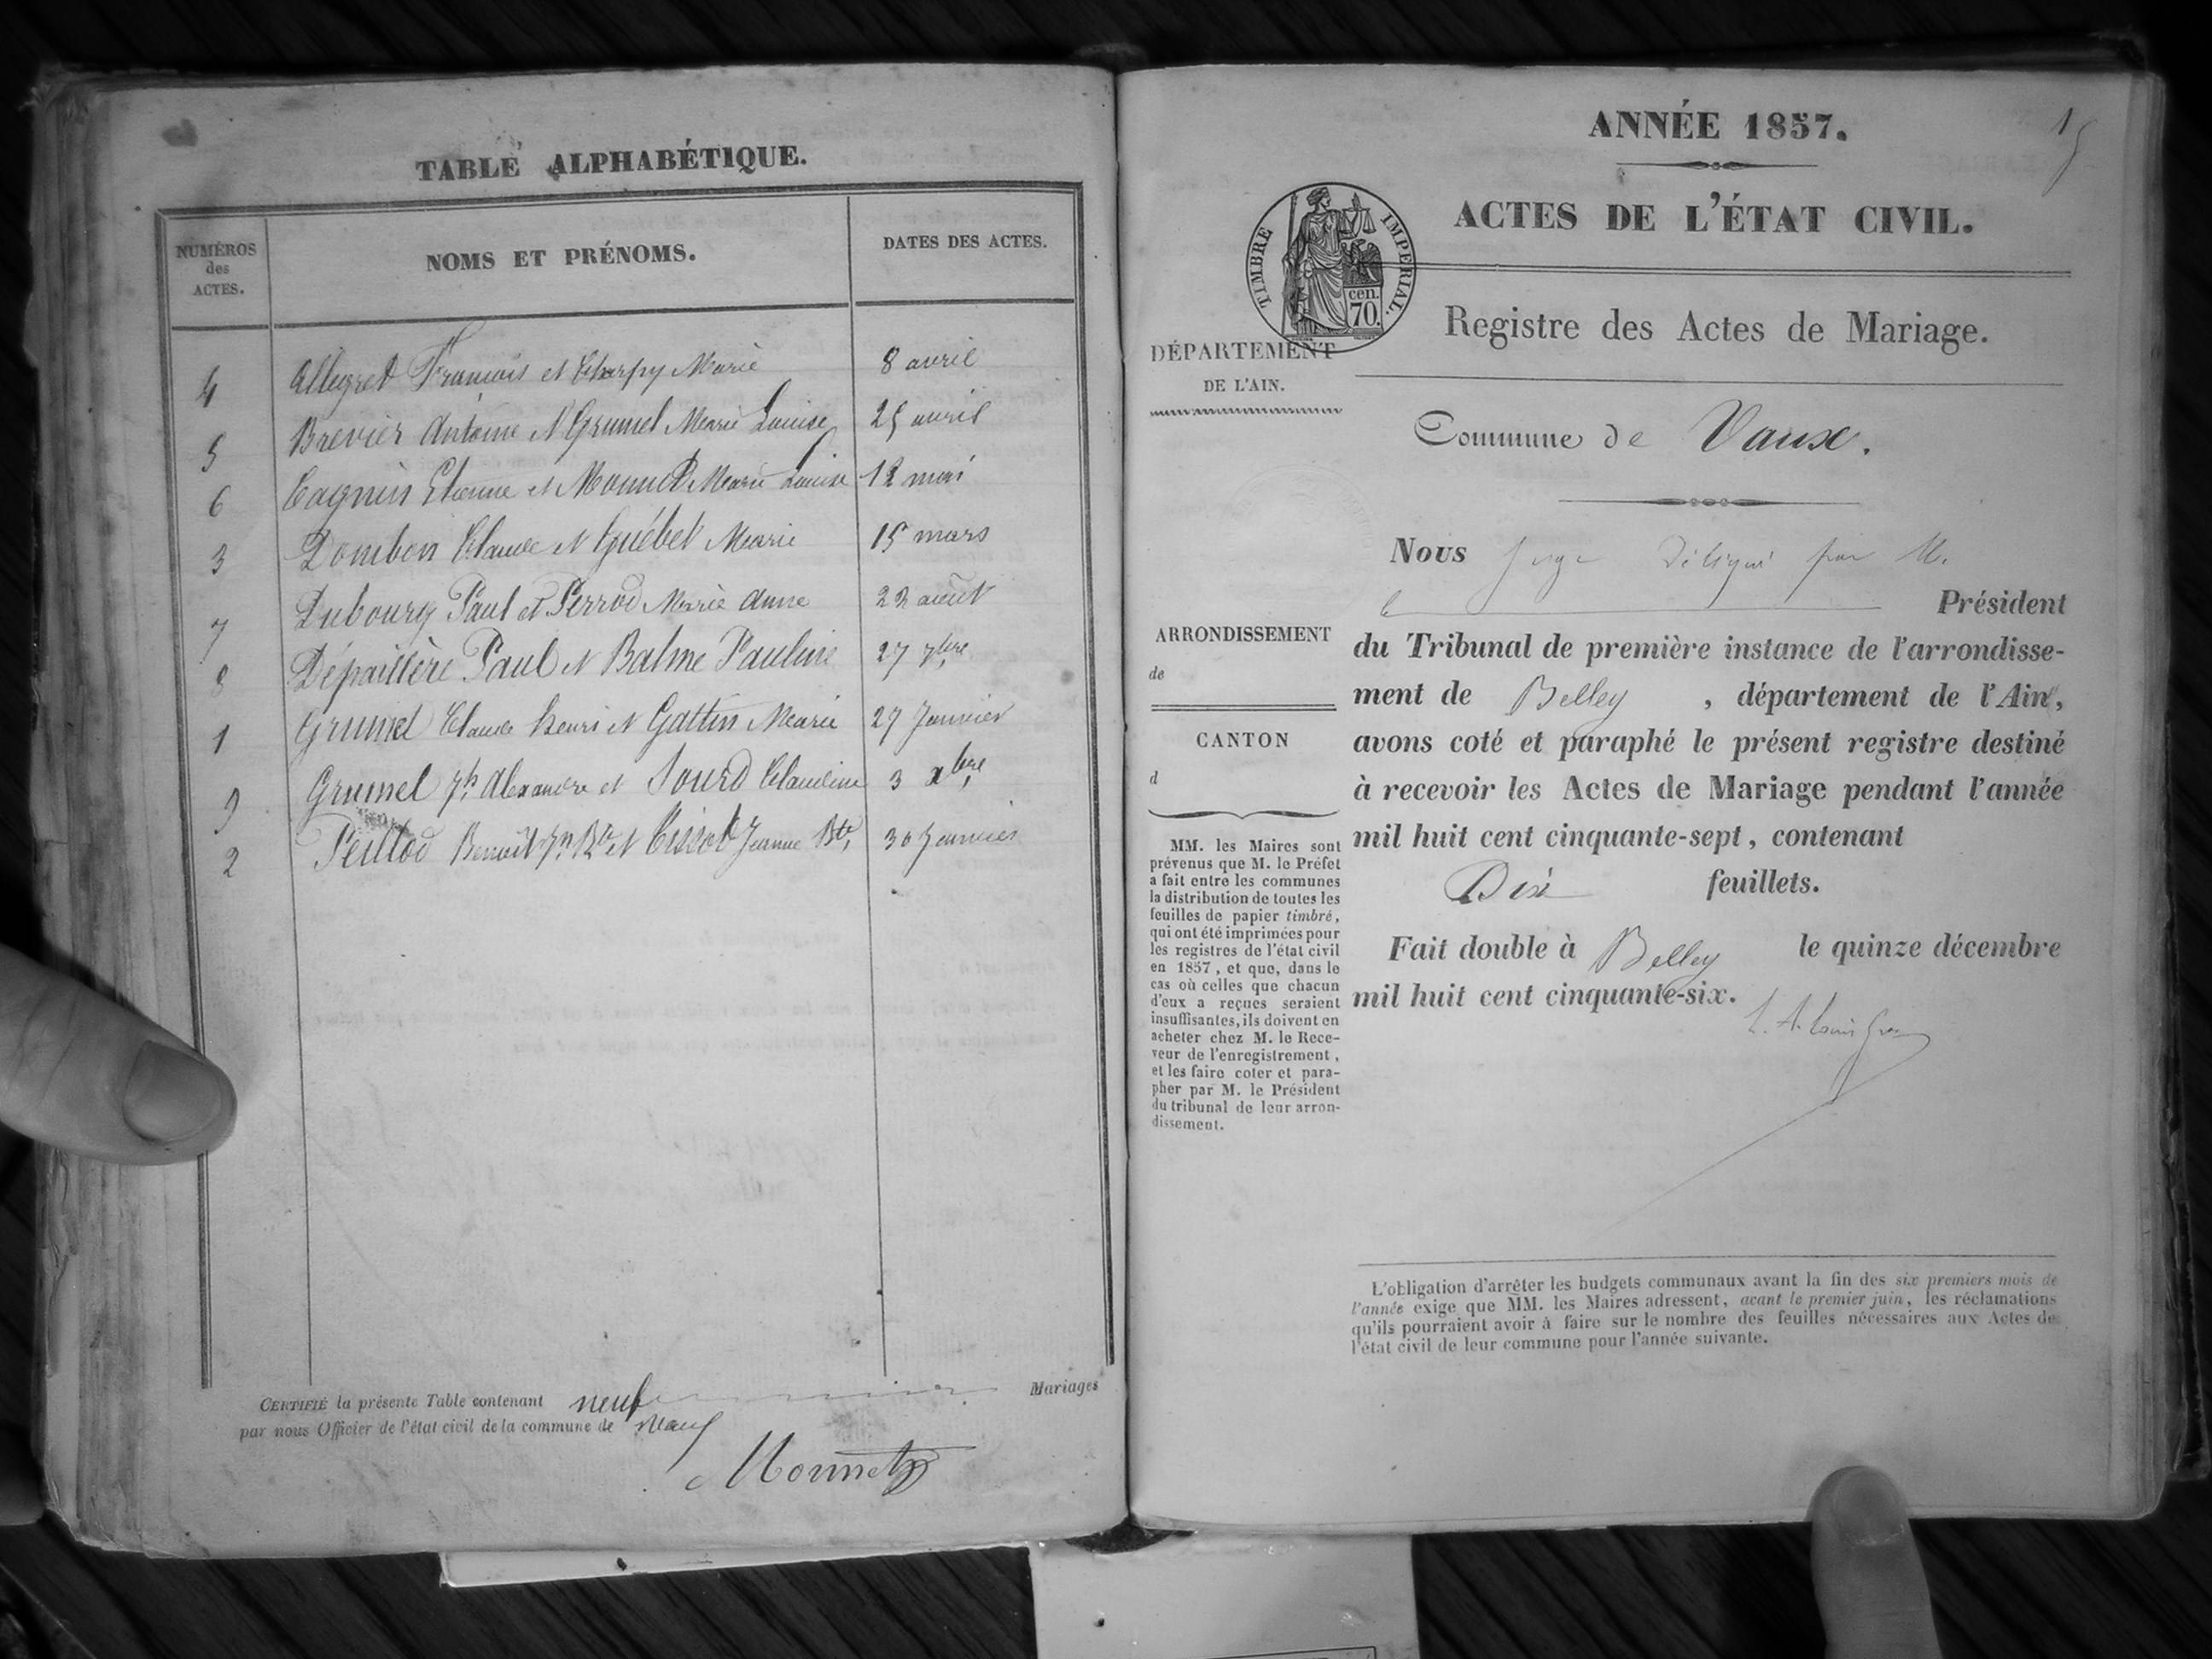 TABLE ALPHABÉTIQUE.
NUMÉROS
des
ACTES.
NOMS ET PRÉNOMS.
DATES DES ACTES.
4 Allegret François et Charpy Marie 8 avril
5 Brevier Antoine et Grumel Marie Louise 25 avril
6 Cagnin Etienne et Monnet Marie Louise 12 mai
3 Dombon Claude et Guébet Marie 15 mars
7 Dubourg Paul et Perrod Marie Anne 22 août
8 Dépaillère Paul et Balme Pauline 27 7bre
1 Grumel Claude Henri et Gattin Marie 27 Janvier
9 Grumel Jh Alexandre et Sourd Claudine 3 xbre
2 Peillod Benoit Jn Bte et Tissot Jeanne Bte 30 Janvier
CERTIFIÉ la présente Table contenant neuf Mariages
par nous Officier de l'état civil de la commune de Vaux
Monnet
15
ANNÉE 1857.
ACTES DE L'ÉTAT CIVIL.
TIMBRE IMPÉRIAL.
cen.
70.
Registre des Actes de Mariage.
DÉPARTEMENT
DE L'AIN.
Commune de Vaux.
ARRONDISSEMENT
de
CANTON
d
MM. les Maires sont
prévenus que M. le Préfet
a fait entre les communes
la distribution de toutes les
feuilles de papier timbré,
qui ont été imprimées pour
les registres de l'état civil
en 1857, et que, dans le
cas où celles que chacun
d'eux a reçues seraient
insuffisantes, ils doivent en
acheter chez M. le Rece-
veur de l'enregistrement,
et les faire coter et para-
pher par M. le Président
du tribunal de leur arron-
dissement.
Nous Juge Délégué par M.
le Président
du Tribunal de première instance de l'arrondisse-
ment de Belley, département de l'Ain,
avons coté et paraphé le présent registre destiné
à recevoir les Actes de Mariage pendant l'année
mil huit cent cinquante-sept, contenant
Dix feuillets.
Fait double à Belley le quinze décembre
mil huit cent cinquante-six.
L'obligation d'arrêter les budgets communaux avant la fin des six premiers mois de
l'année exige que MM. les Maires adressent, avant le premier juin, les réclamations
qu'ils pourraient avoir à faire sur le nombre des feuilles nécessaires aux Actes de
l'état civil de leur commune pour l'année suivante.